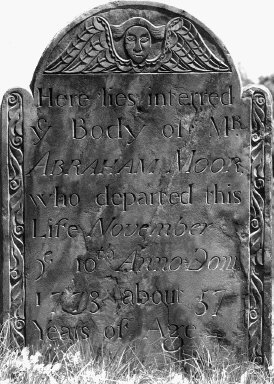 Here lies interred
yͤ Body of Mͬ
ABRAHAM MOOR
who departed this
Life November
yͤ 10ᵗʰ Anno:Dom
17 3 about 57
Years of Age